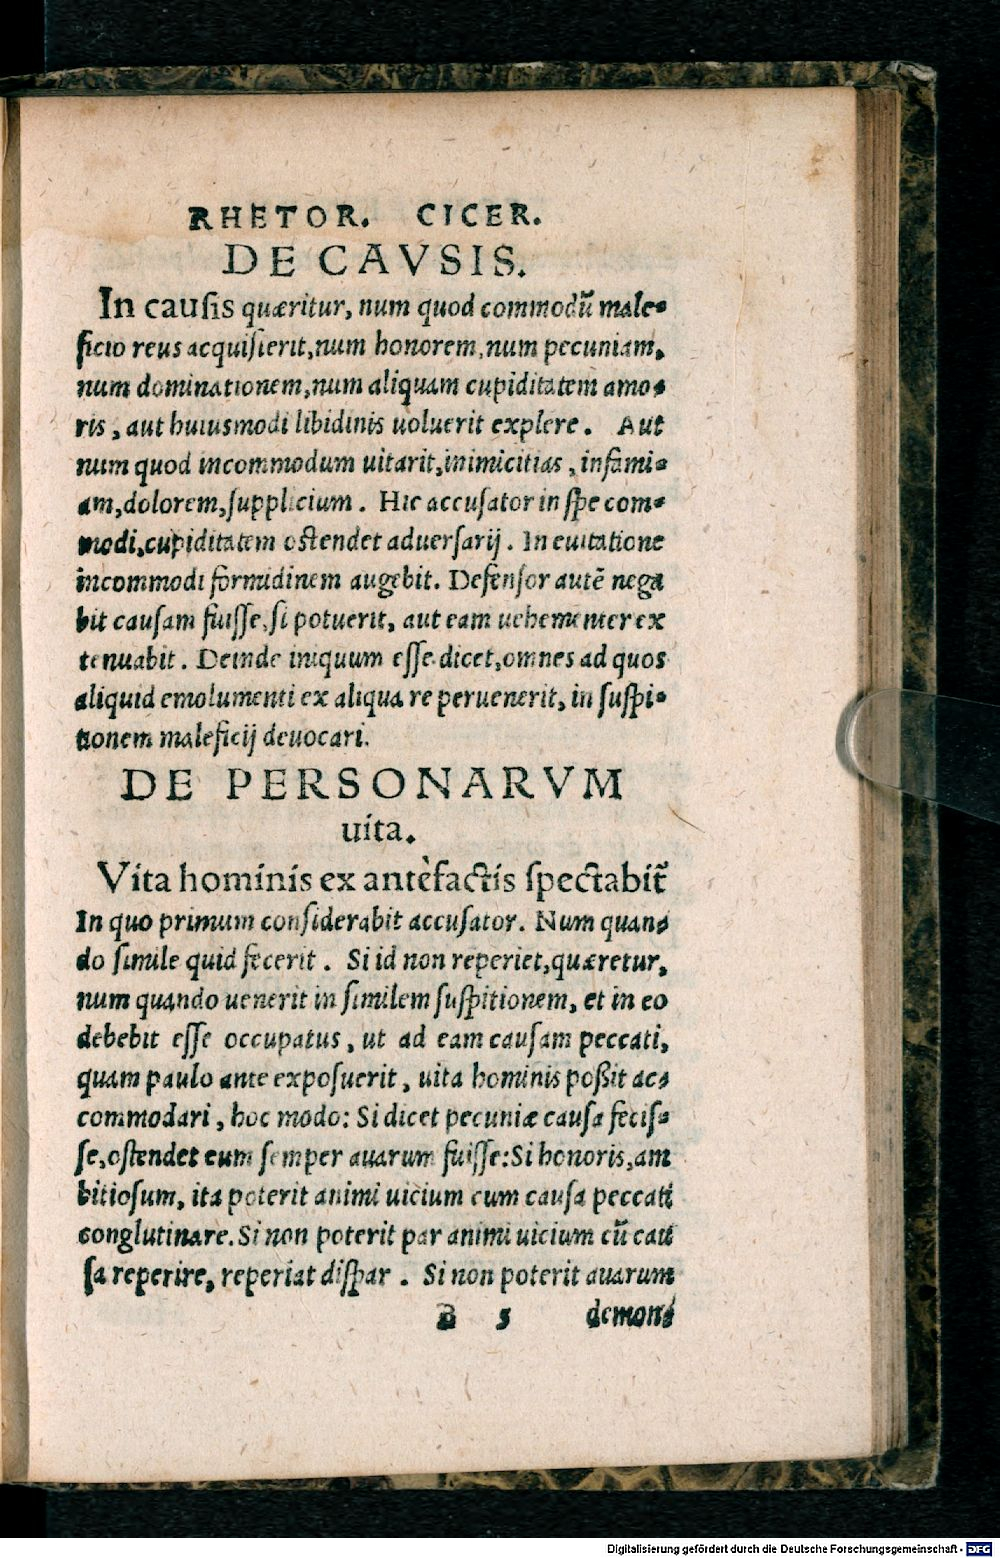 RHETOR. CICER.
DE CAVSIS.
In causis quæritur, num quod commodũ male-
ficio reus acquisierit, num honorem, num pecuniam,
num dominationem, num aliquam cupiditatem amo-
ris, aut huiusmodi libidinis uoluerit explere. Aut
num quod incommodum uitarit, inimicitias, infami-
am, dolorem, supplicium. Hic accusator in spe com-
modi, cupiditatem ostendet aduersarij. In euitatione
incommodi formidinem augebit. Defensor autẽ nega
bit causam fuisse, si potuerit, aut eam uehementer ex
tenuabit. Deinde iniquum esse dicet, omnes ad quos
aliquid emolumenti ex aliqua re peruenerit, in suspi-
tionem maleficij deuocari.
DE PERSONARVM
uita.
Vita hominis ex antèfactis spectabit᷑
In quo primum considerabit accusator. Num quan-
do simile quid fecerit. Si id non reperiet, quæretur,
num quando uenerit in similem suspitionem, et in eo
debebit esse occupatus, ut ad eam causam peccati,
quam paulo ante exposuerit, uita hominis poßit ac-
commodari, hoc modo: Si dicet pecuniæ causa fecis-
se, ostendet eum semper auarum fuisse: Si honoris, am
bitiosum, ita poterit animi uicium cum causa peccati
conglutinare. Si non poterit par animi uicium cũ cau
sa reperire, reperiat dispar. Si non poterit auarum
B 5 demon-
Digitalisierung gefördert durch die Deutsche Forschungsgemeinschaft - DFG